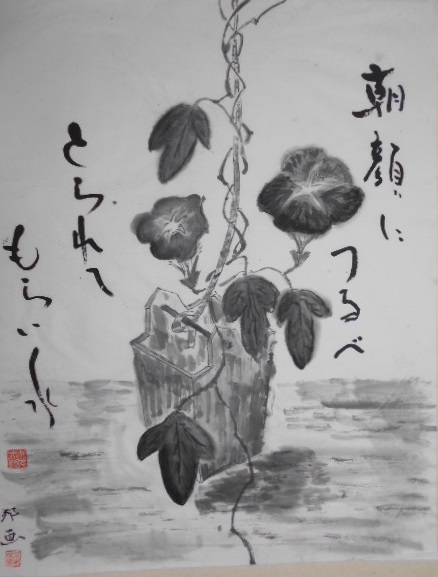 朝顔に
つるべ
とられて
もらい水
邦画